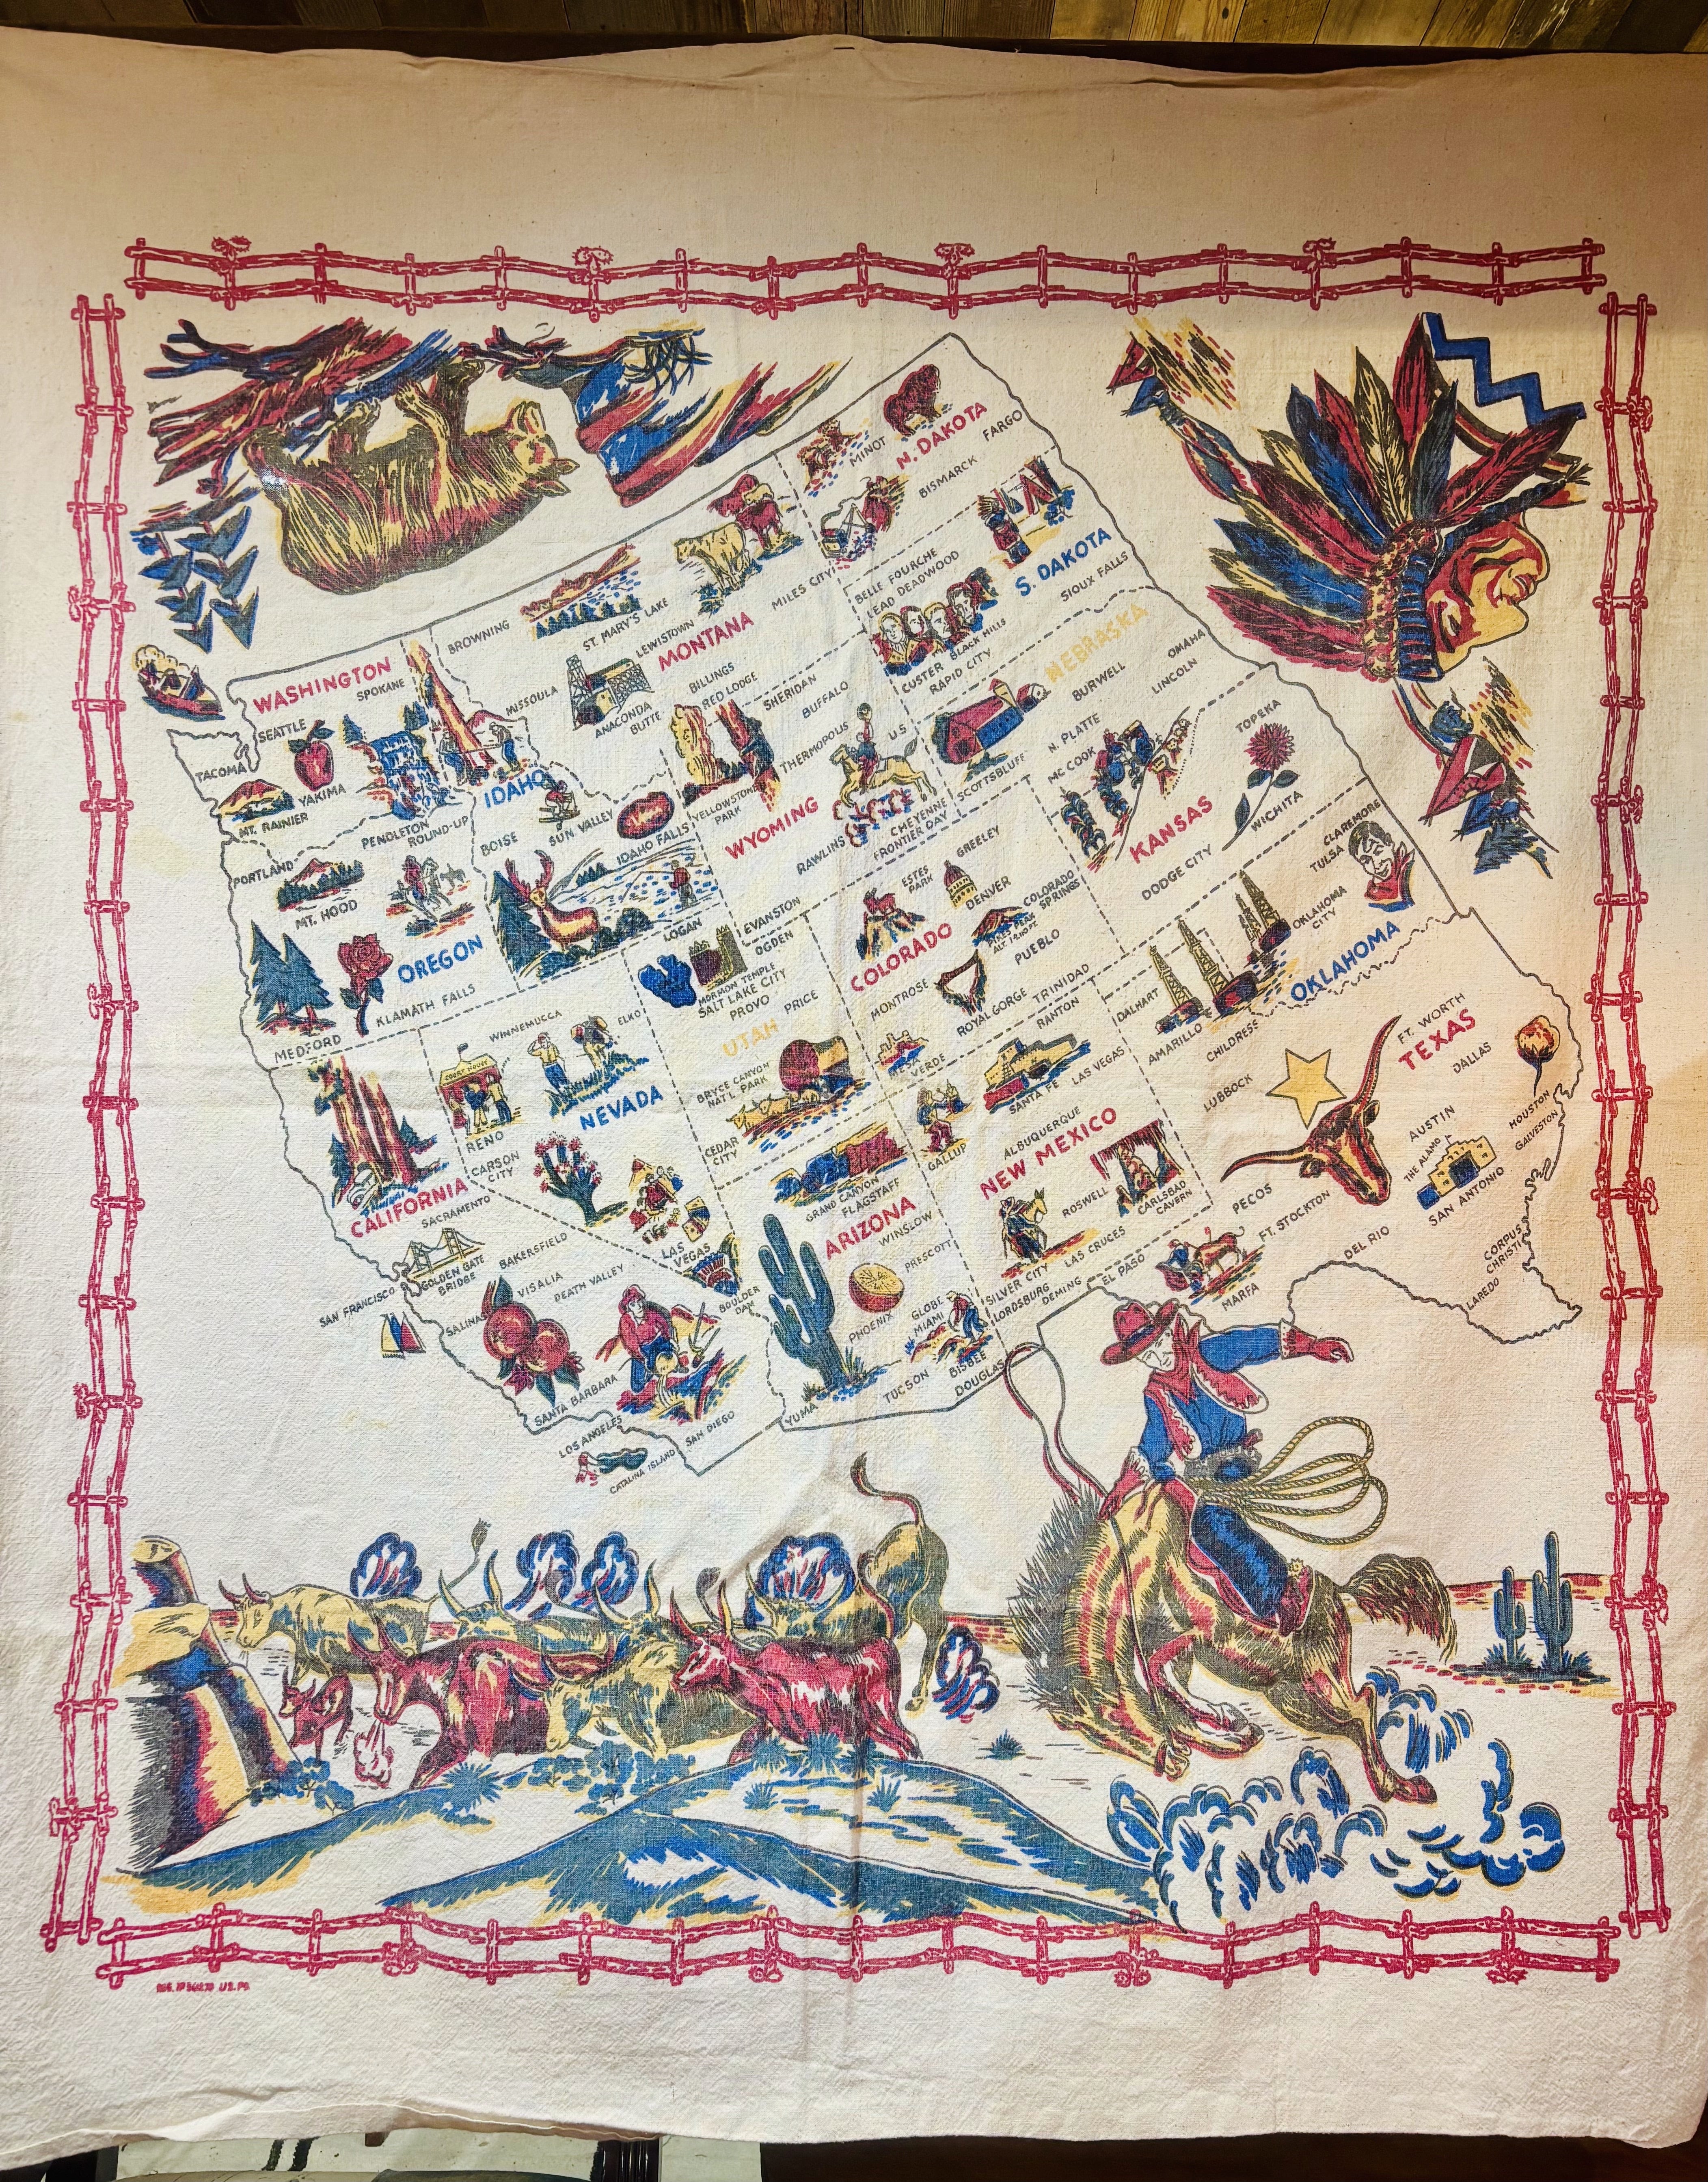 WASHINGTON
SPOKANE
SEATTLE
TACOMA
YAKIMA
MT. RAINIER
BROWNING
ST. MARY'S LAKE
LEWISTOWN
MONTANA
MILES CITY
MISSOULA
ANACONDA
BUTTE
BILLINGS
RED LODGE
MINOT
N. DAKOTA
FARGO
BISMARCK
BELLE FOURCHE
LEAD DEADWOOD
S. DAKOTA
SIOUX FALLS
CUSTER
BLACK HILLS
RAPID CITY
NEBRASKA
OMAHA
BURWELL
LINCOLN
N. PLATTE
MC COOK
SCOTTSBLUFF
SHERIDAN
BUFFALO
THERMOPOLIS
U S
YELLOWSTONE
PARK
WYOMING
RAWLINS
CHEYENNE
FRONTIER DAY
EVANSTON
IDAHO
BOISE
SUN VALLEY
IDAHO FALLS
PENDLETON
ROUND-UP
PORTLAND
MT. HOOD
OREGON
KLAMATH FALLS
MEDFORD
TOPEKA
KANSAS
WICHITA
DODGE CITY
ESTES
PARK
GREELEY
DENVER
COLORADO
SPRINGS
PIKES PEAK
COLORADO
PUEBLO
MONTROSE
ROYAL GORGE
TRINIDAD
MESA
VERDE
LOGAN
OGDEN
MORMON TEMPLE
SALT LAKE CITY
PROVO
PRICE
UTAH
BRYCE CANYON
NAT'L. PARK
CEDAR
CITY
WINNEMUCCA
ELKO
COURT HOUSE
NEVADA
RENO
CARSON
CITY
LAS
VEGAS
BOULDER
DAM
CALIFORNIA
SACRAMENTO
GOLDEN GATE
BRIDGE
BAKERSFIELD
SAN FRANCISCO
VISALIA
DEATH VALLEY
SALINAS
SANTA BARBARA
LOS ANGELES
SAN DIEGO
CATALINA ISLAND
GRAND CANYON
FLAGSTAFF
ARIZONA
WINSLOW
PRESCOTT
PHOENIX
GLOBE
MIAMI
BISBEE
DOUGLAS
TUCSON
YUMA
RANTON
SANTA FE
LAS VEGAS
GALLUP
ALBUQUERQUE
NEW MEXICO
ROSWELL
CARLSBAD
CAVERN
LAS CRUCES
SILVER CITY
LORDSBURG
DEMING
CLAREMORE
TULSA
OKLAHOMA
CITY
OKLAHOMA
DALHART
AMARILLO
CHILDRESS
FT. WORTH
TEXAS
DALLAS
LUBBOCK
AUSTIN
HOUSTON
GALVESTON
THE ALAMO
SAN ANTONIO
PECOS
FT. STOCKTON
DEL RIO
EL PASO
MARFA
CORPUS
CHRISTI
LAREDO